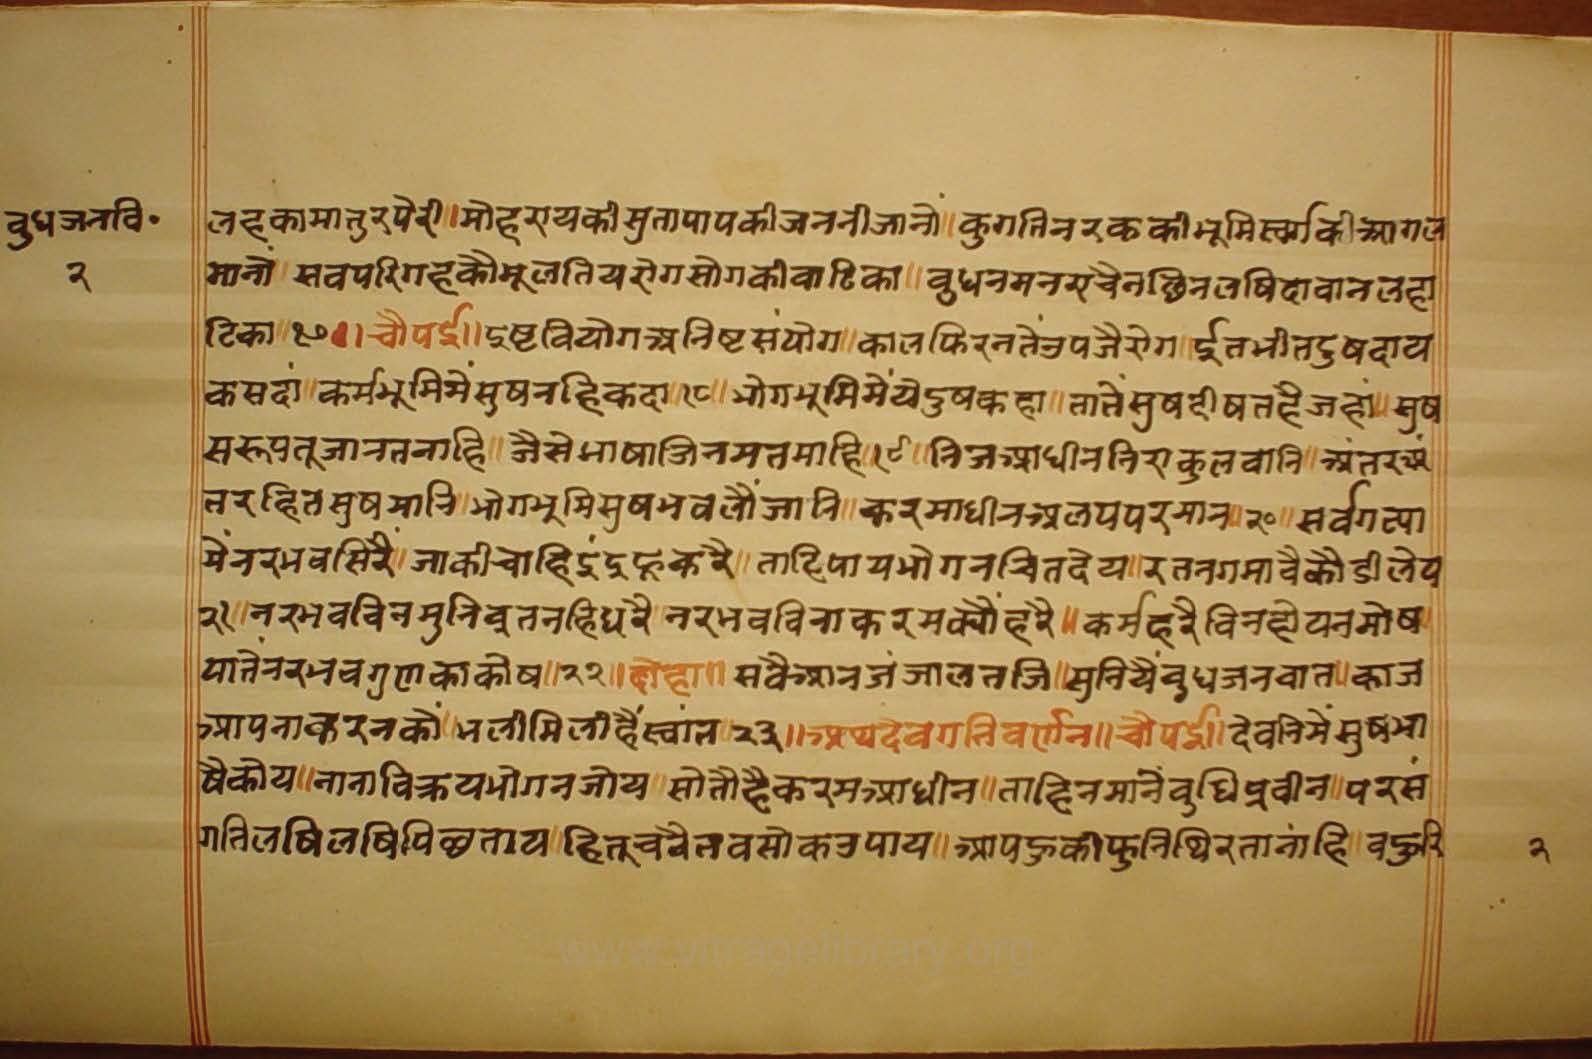 वुधजनवि॰
२
लहकामातुरपैरी॥मोहरायकीसुतापापकीजननीजानों॥कुगतिनरककीभूमिस्वर्गकीआगल
मानों॥सवपरिगहकौमूलतियरोगसोगकीवाटिका॥वुधनमनराचैनछिनलषिदावानलहा
टिका॥१७॥चौपई॥इष्टवियोगअनिष्टसंयोग॥कालफिरनतेंउपजैरोग॥ईतभीतदुषदाय
कसदां॥कर्मभूमिमेंसुषनहिकदा॥१८॥भोगभूमिमेंयेदुषकहा॥तातेंसुषदीषतहैजहां॥सुष
सरूपतूजानतनाहि॥जैसेभाषाजिनमतमाहि॥१९॥निजआधीननिराकुलवानि॥अंतरअं
तरहितसुषमानि॥भोगभूमिसुषभवलौंजानि॥करमाधीनअलपपरमान॥२०॥सर्वगत्या
मेंनरभवसिरैं॥जाकीचाहिइंद्रफूकरै॥ताहिपायभोगनचितदेय॥रतनगमावैकौडीलेय
२१॥नरभवविनमुनिव्रतनहिधरै॥नरभवविनाकरमक्यौंहरै॥कर्महरैविनहोयनमोष॥
यातेंनरभवगुणकोकोष॥२२॥दोहा॥सवैआनजंजालतजि॥सुनियैंवुधजनवात॥काज
आपनाकरनकौं॥भलीमिलीहैंस्वांत॥२३॥अथदेवगतिवर्णन॥चौपई॥देवनिमेंसुषभा
षैकोय॥नानाविक्रयभोगनजोय॥सोतौहैकरमआधीन॥ताहिनमांनेंवुधिप्रवीन॥परसं
गतिलषिलषिपिछताय॥हितूचवैतवसोकउपाय॥आपहुकीफुनिथिरतानांहि॥वहुरि
२
www.vitragelibrary.org